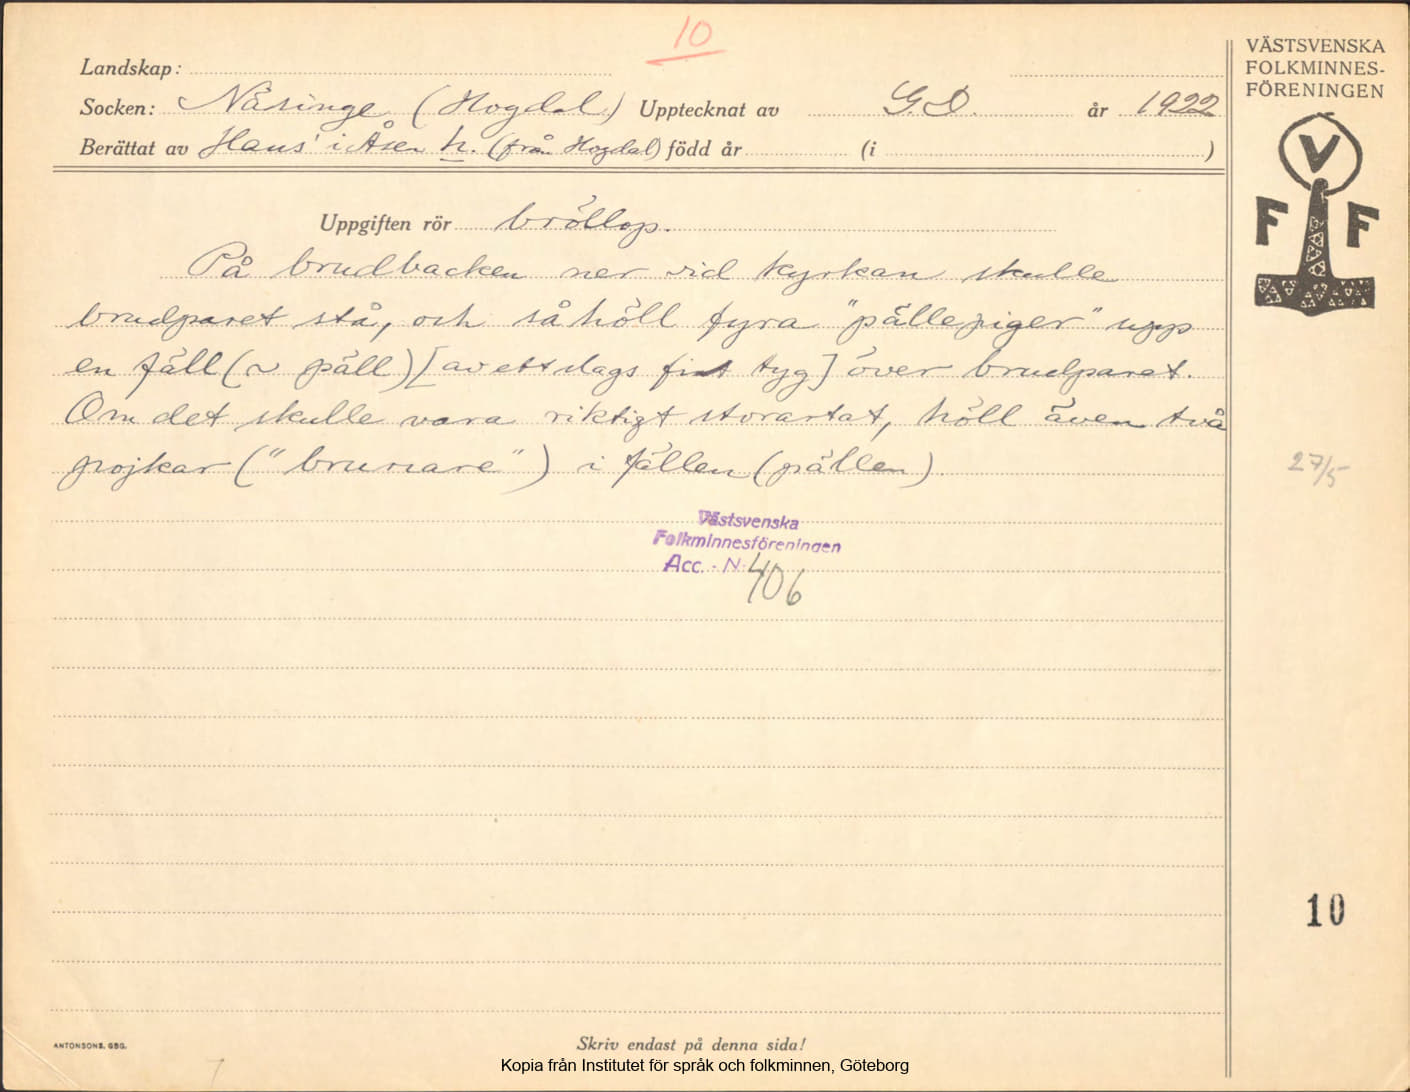 10
VÄSTSVENSKA
FOLKMINNES-
FÖRENINGEN
Landskap:
Socken: Näsinge (Hogdal) Upptecknat av G.D. år 1922
Berättat av Hans' i Åsen h. (från Hogdal) född år (i )
V
F F
Uppgiften rör bröllop.
På brudbacken ner vid kyrkan skulle
brudparet stå, och så höll fyra "pällepiger" upp
en fäll (~ päll) [av ett slags fint tyg] över brudparet.
Om det skulle vara riktigt storartat, höll även två
pojkar ("brunare") i fällen (pällen).
27/5
Västsvenska
Folkminnesföreningen
Acc. - N 406
10
ANTONSONS, GBG.
Skriv endast på denna sida!
Kopia från Institutet för språk och folkminnen, Göteborg